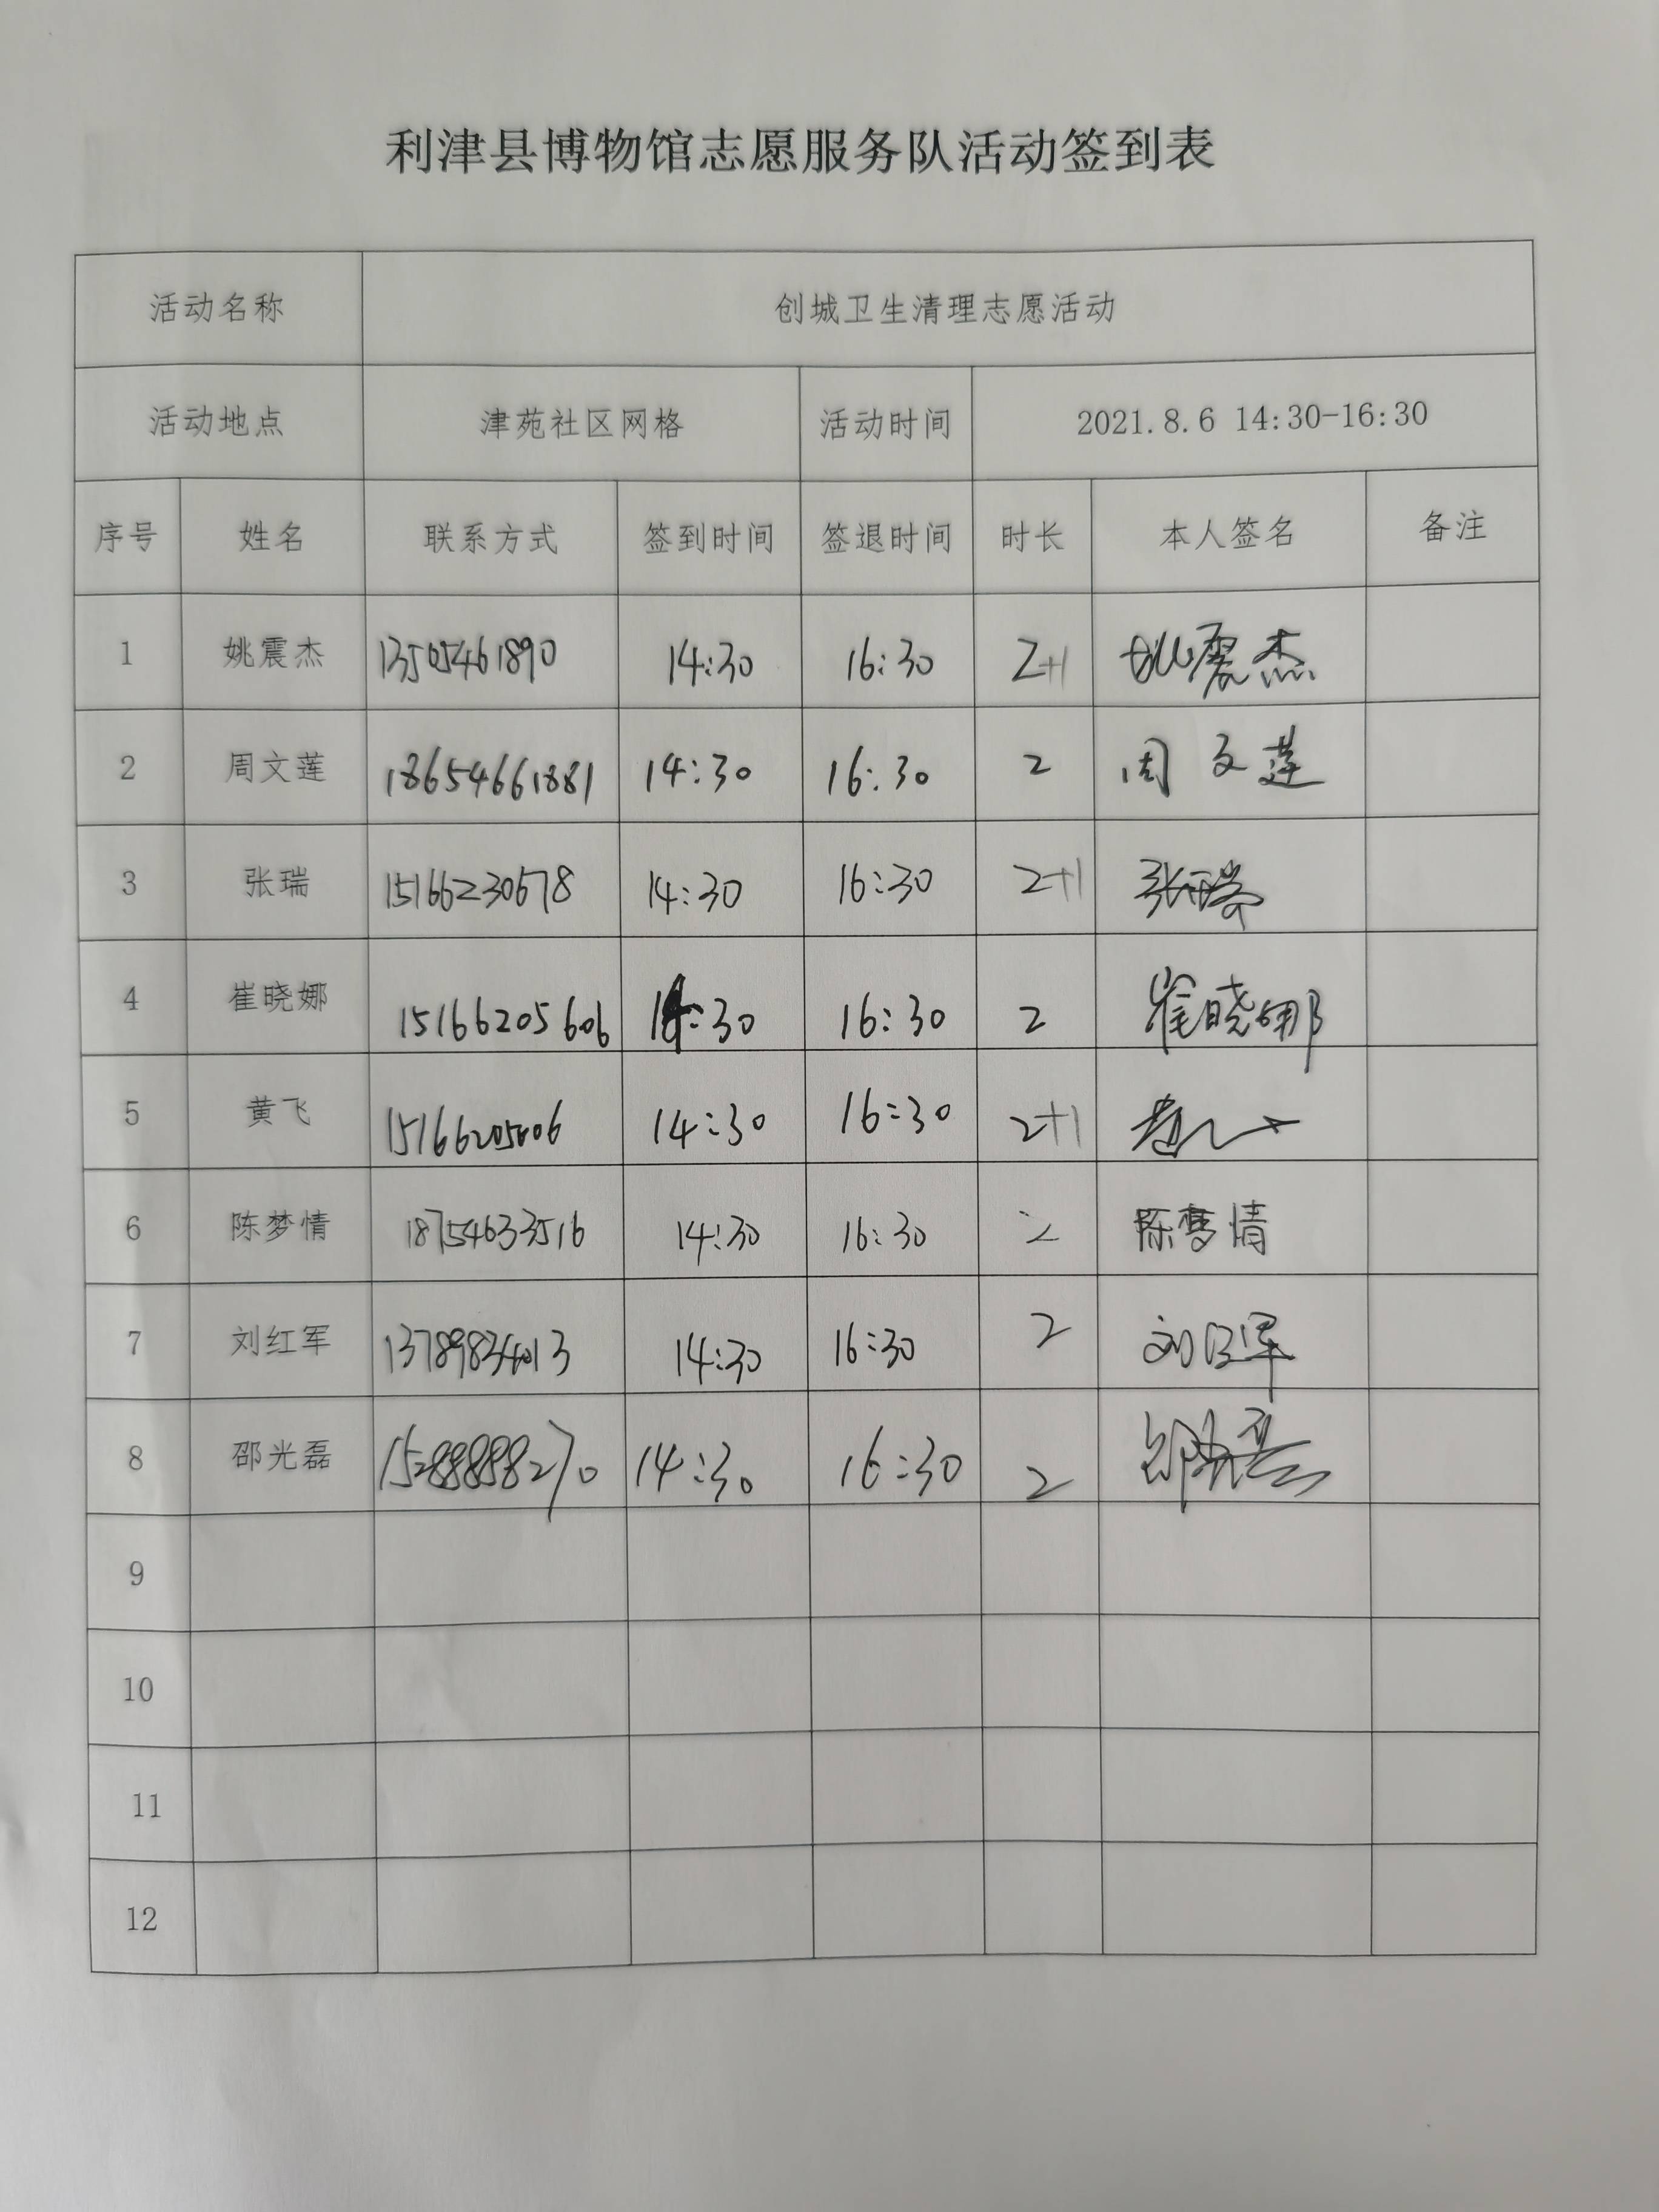 利津县博物馆志愿服务队活动签到表
活动名称 创城卫生清理志愿活动
活动地点 津苑社区网格 活动时间 2021.8.6 14:30-16:30
序号 姓名 联系方式 签到时间 签退时间 时长 本人签名 备注
1 姚震杰 13505461890 14:30 16:30 2+1 姚震杰
2 周文莲 18654661881 14:30 16:30 2 周文莲
3 张瑞 15166230678 14:30 16:30 2+1 张瑞
4 崔晓娜 15166205606 14:30 16:30 2 崔晓娜
5 黄飞 14:30 16:30 2+1
6 陈梦情 18754633516 14:30 16:30 2 陈梦情
7 刘红军 14:30 16:30 2 刘红军
8 邵光磊 14:30 16:30 2 邵光磊
9
10
11
12